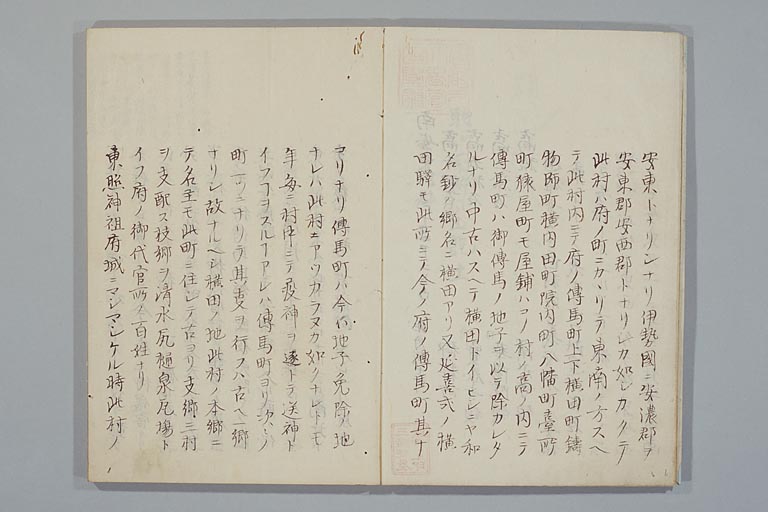 安東トナリシナリ伊勢國ニ安濃郡ヲ
安東郡安西郡トナリシカ如シカクテ
此村ハ府ノ町ニカヽリテ東南ノ方スヘ
テ此村内ニテ府ノ傳馬町上下横田町鋳
物師町横内田町院内町八幡町臺所
町猿屋町モ屋鋪ハコノ村ノ高ノ内ニテ
傳馬町ハ御傳馬ノ地子ヲ以テ除カレタ
ルナリ中古ハスヘテ横田トイヒシニヤ和
名鈔ノ郷名ニ横田アリ又延喜式ノ横
田驛モ此所ニテ今ノ府ノ傳馬町其ナ
コリナリ傳馬町ハ今ハ地子免除ノ地
ナレハ此村ニアツカラヌカ如クナレトモ
年毎ニ村中ニテ疫神ヲ逐トテ送神ト
イフヿヲスルヿアレハ傳馬町ヨリ次々ノ
町一ツニナリテ其事ヲ行フハ古ヘ一郷
ナリシ故ナルヘシ横田ノ地此村ノ本郷ニ
テ名主モ此町ニ住シテ古ヨリ支郷三村
ヲ支配ス枝郷ヲ清水尻樋泉尻場ト
イフ府ノ御代官所ノ百姓ナリ
東照神祖府城ニマシマシケル時此村ノ